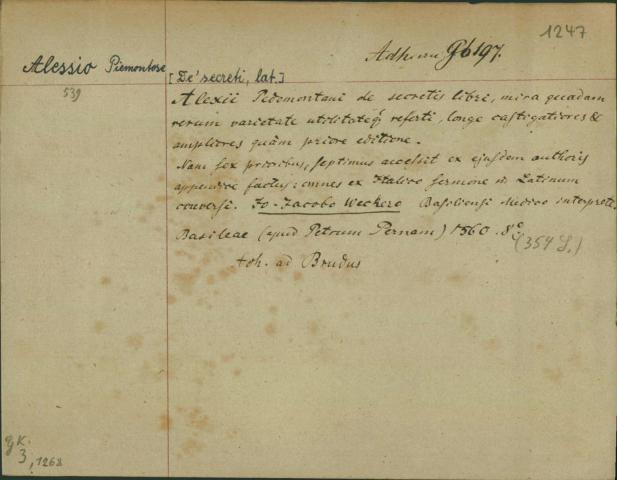 1247
Adh: an Gb 197.
Alessio Piemontese
[De' secreti, lat.]
539
Alexii Pedemontani de secretis libri, mira quadam
rerum varietate utilitateq́; referti, longe castigatiores &
ampliores quàm priore editione.
Nam sex prioribus, septimus accessit ex ejusdem authoris
appendice factus: omnes ex Italico sermone in Latinum
conversi. Jo-Jacobo Weckero Basiliensi Medico interprete.
Basileae (apud Petrum Pernam) 1560. 8°.
(354 S.)
adh. ad Brudus
GK.
3, 1268